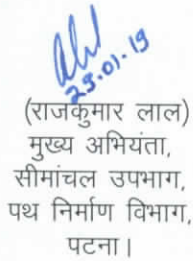 29.01.19
(राजकुमार लाल)
मुख्य अभियंता,
सीमांचल उपभाग,
पथ निर्माण विभाग,
पटना।